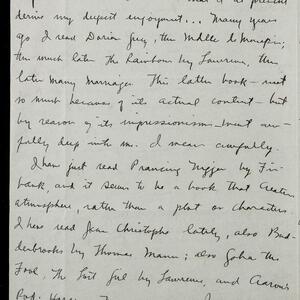 that is at present
derive my deepest enjoyment... Many years
ago I read Dorian Grey, then Mdlle de Maupin;
then much later the Rainbow by Lawrence, then
later Many Marriages. This latter book — not
so much because of its actual content — but
by reason of its impressionism — went
fully deep into me. I mean
I have just read Prancing Nigger by Fir-
bank, and it seems to be a book that creates
atmosphere, rather than a plot or characters.
I have read Jean Christophe lately, also Bud-
denbrooks by Thomas Mann; also Goha the
Fool, The Lost Girl by Lawrence, and Aaron's
Rod.